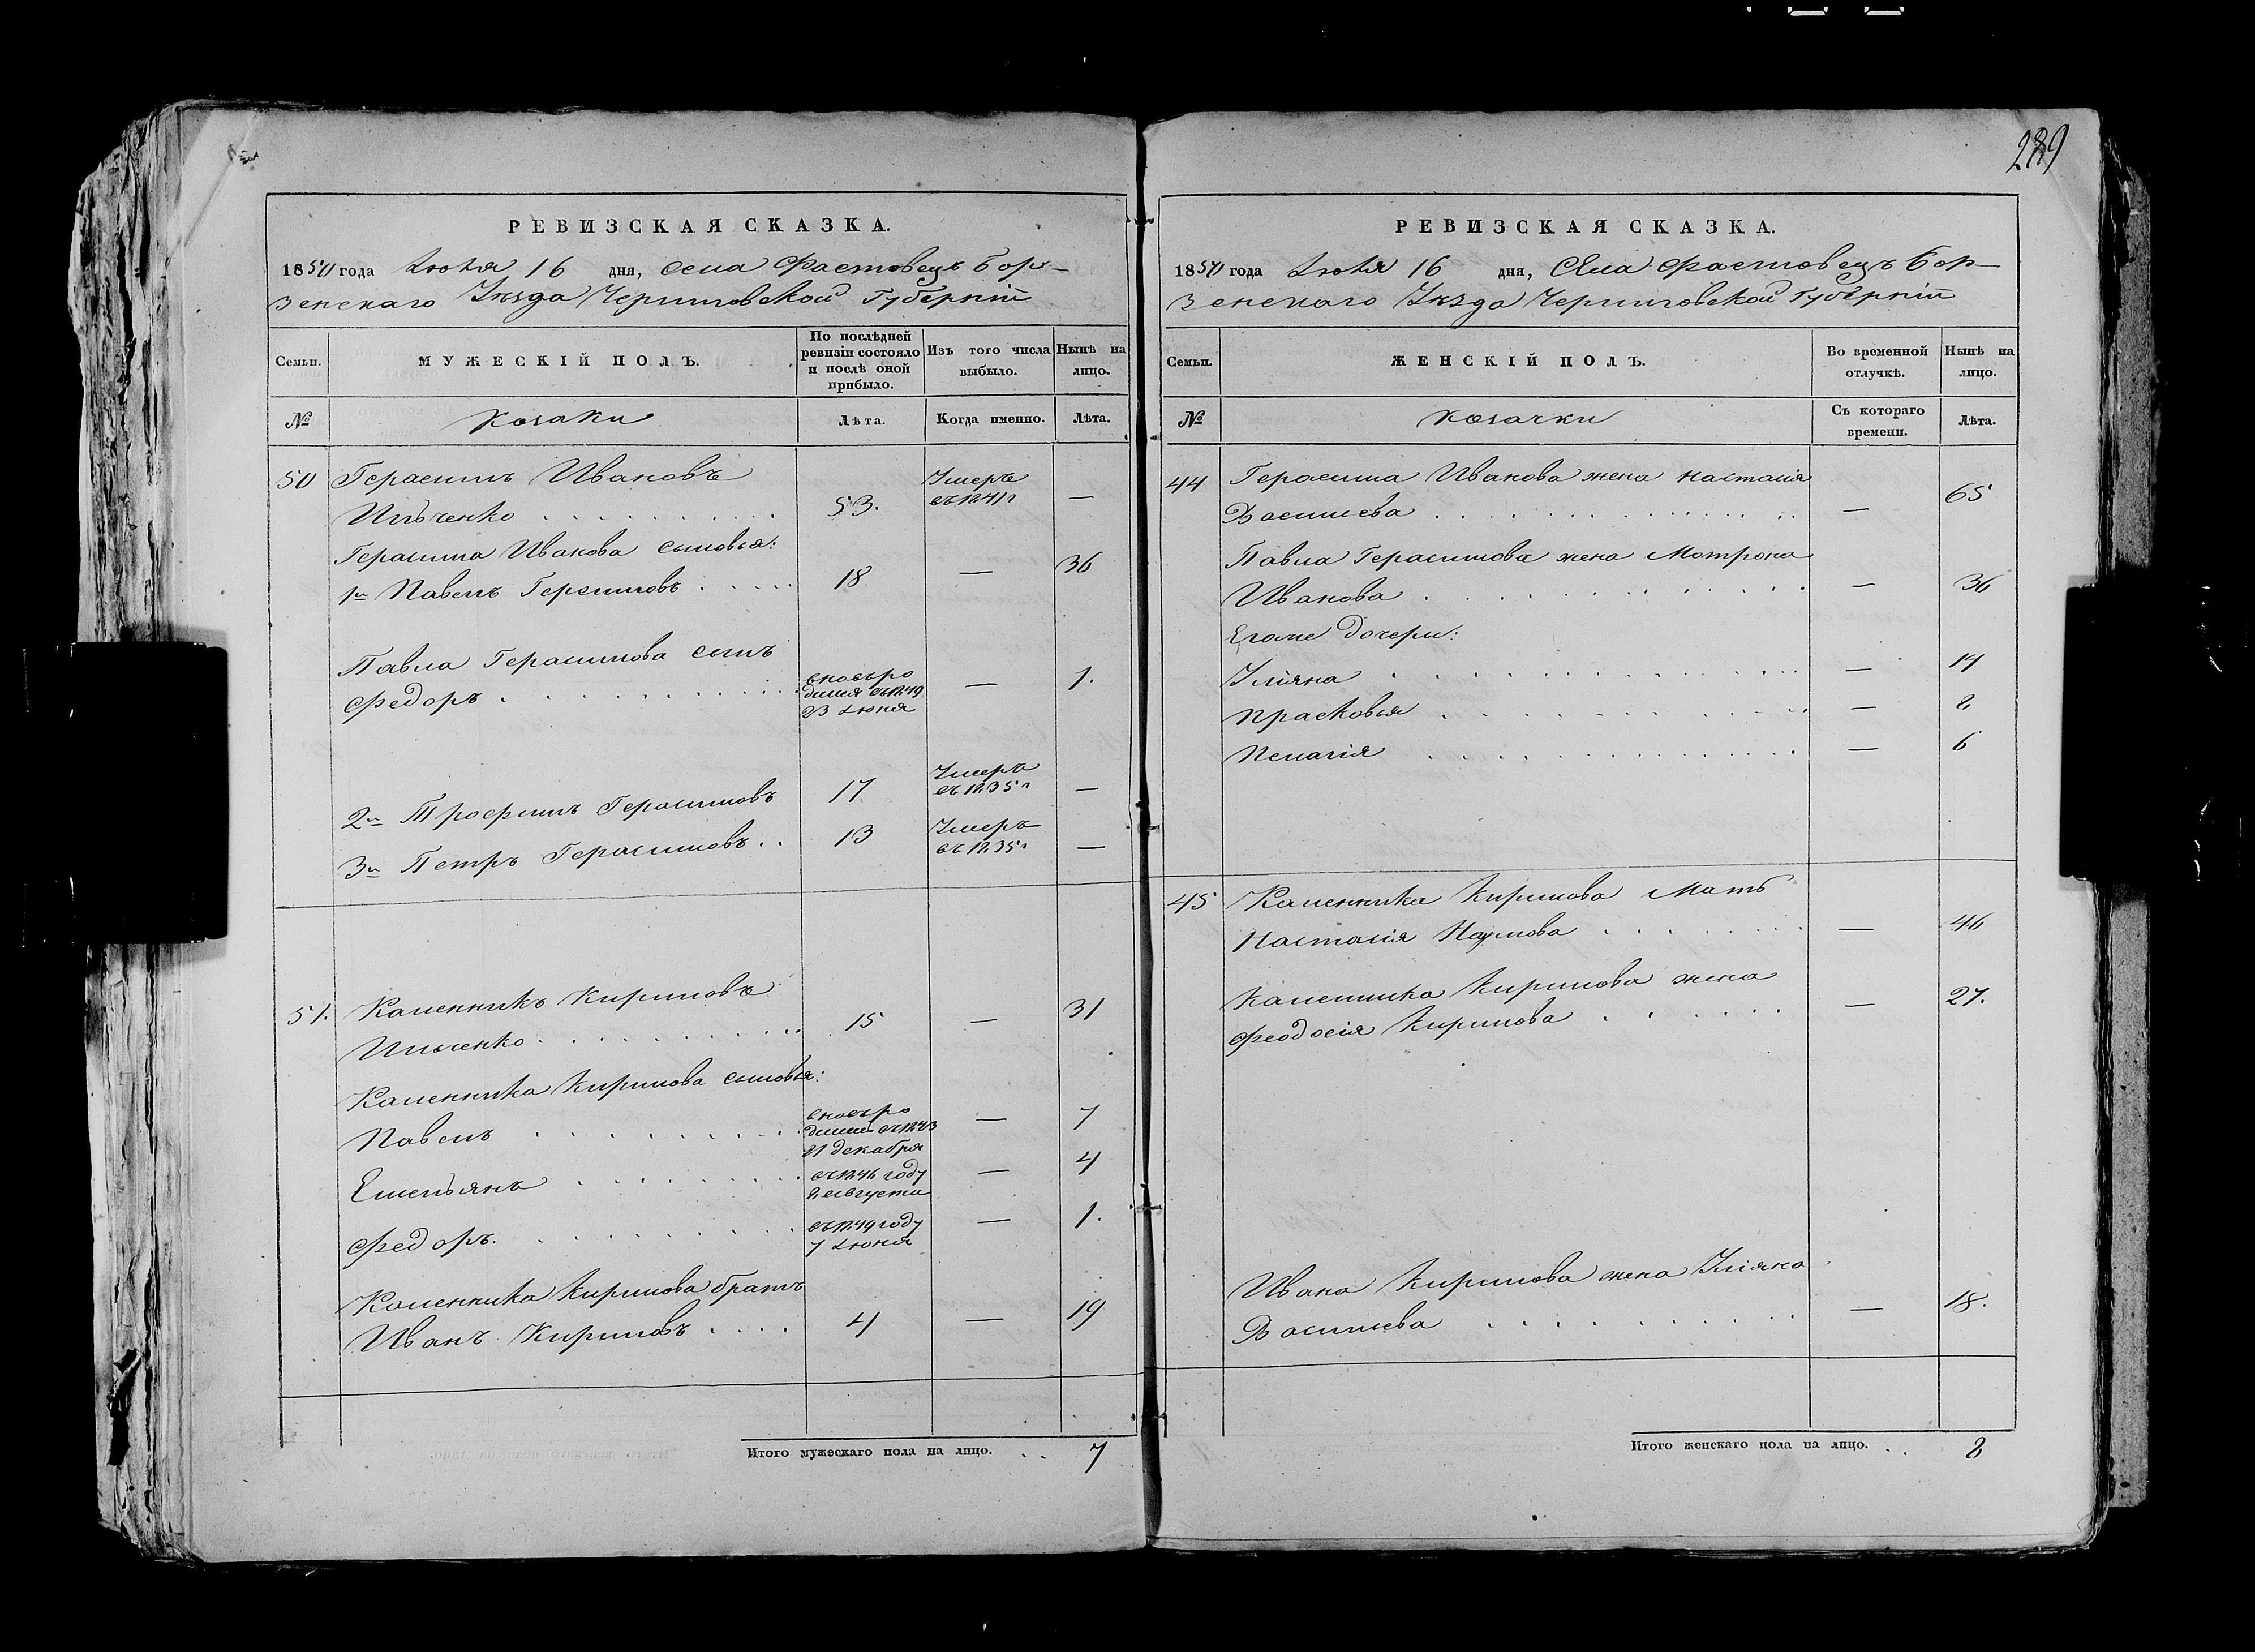 289
РЕВИЗСКАЯ СКАЗКА.
1850 года Іюля 16 дня, села Фастовецъ Бор-
зенскаго Уѣзда Черниговской Губерніи
Семьи.
МУЖЕСКІЙ ПОЛЪ.
По послѣдней ревизіи состояло и послѣ оной прибыло.
Изъ того числа выбыло.
Нынѣ на лицо.
№
Козаки
Лѣта.
Когда именно.
Лѣта.
50 Герасимъ Ивановъ
Ильченко 53. Умеръ въ 1841г —
Герасима Иванова сыновья:
1й Павелъ Герасимовъ 18 — 36
Павла Герасимова сынъ
Федоръ вновь ро
дился въ 1849
23 Іюня — 1.
2й Трофимъ Герасимовъ 17 Умеръ въ 1835г —
3й Петръ Герасимовъ 13 Умеръ въ 1835г —
51. Каленникъ Кириловъ
Ильченко 15 — 31
Каленника Кирилова сыновья:
Павелъ вновь ро
дился въ 1843
21 декабря — 7
Емельянъ въ 1846 году
8 августа — 4
Федоръ. въ 1849 году
7 Іюня — 1.
Каленника Кирилова братъ
Иванъ Кириловъ 4 — 19
Итого мужескаго пола на лицо. . . 7
РЕВИЗСКАЯ СКАЗКА.
1850 года Іюля 16 дня, Села Фастовецъ Бор-
зенскаго Уѣзда Черниговской Губерніи
Семьи.
ЖЕНСКІЙ ПОЛЪ.
Во временной отлучкѣ.
Нынѣ на лицо.
№
Козачки
Съ котораго времени.
Лѣта.
44 Герасима Иванова жена Настасія
Васильева — 65
Павла Герасимова жена Мотрона
Иванова — 36
Егоже дочери:
Уліяна — 14
Прасковья — 8
Пелагія — 6
45 Каленника Кирилова Мать
Настасія Наумова — 46
Каленника Кирилова жена
Феодосія Кирилова — 27.
Ивана Кирилова жена Уліяна
Васильева — 18.
Итого женскаго пола на лицо. . . 8